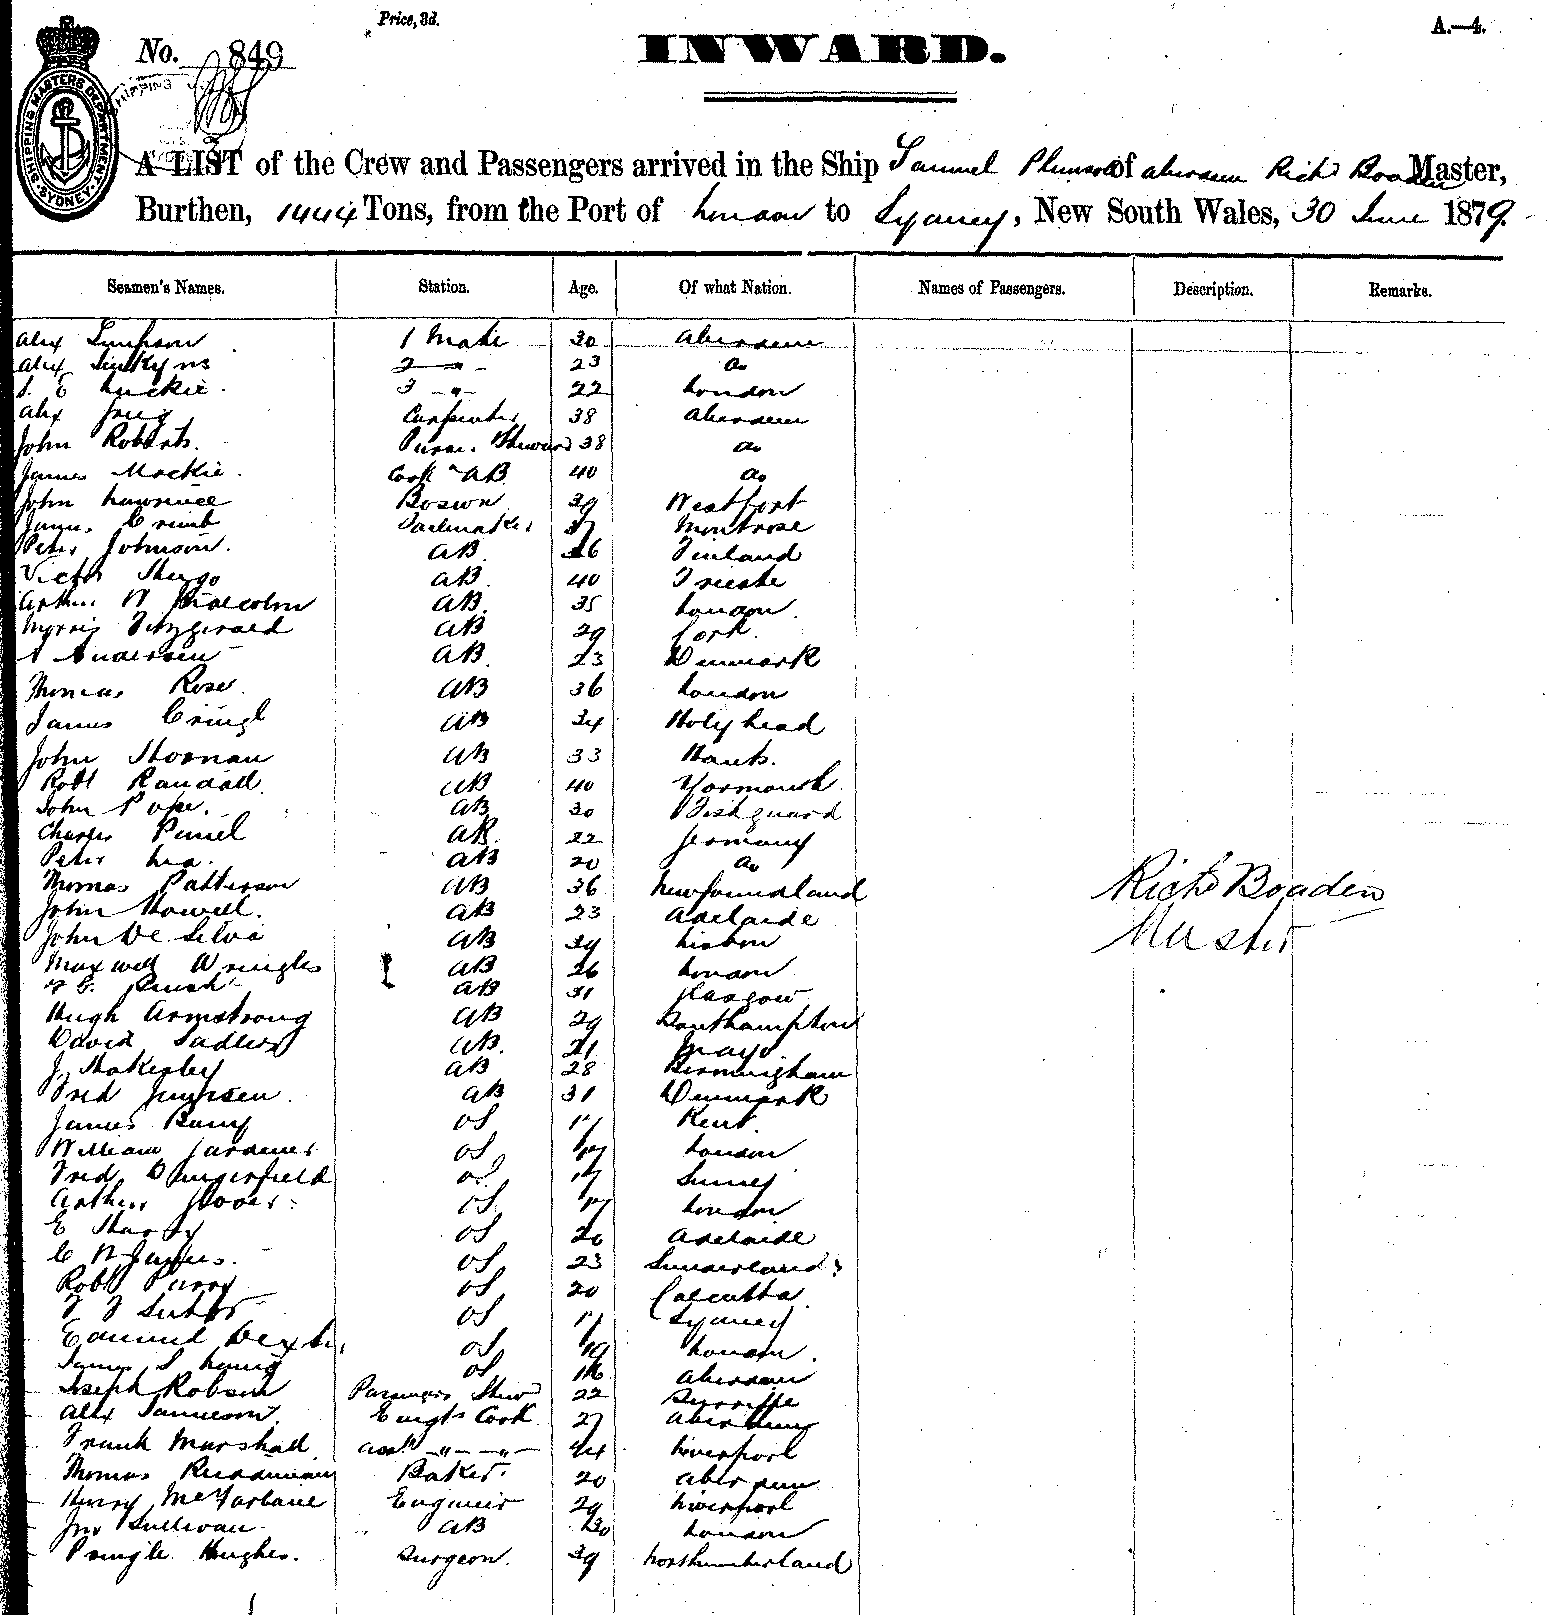 Price, 3d.
A.—4.
No. 849
INWARD.
SHIPPING MASTERS DEPARTMENT SYDNEY
A LIST of the Crew and Passengers arrived in the Ship Samuel Plimsoll of Aberdeen Richd Boaden Master,
Burthen, 1444 Tons, from the Port of London to Sydney, New South Wales, 30 June 1879.
Seamen's Names. Station. Age. Of what Nation. Names of Passengers. Description. Remarks.
Alex Simpson 1 Mate 30 Aberdeen
Alex 2 — " — 23 Do
S. E. Luckie 3 — " — 22 London
Alex Greig Carpenter 38 Aberdeen
John Roberts. Purser Steward 38 Do
James Mackie. Cook AB 40 Do
John Lawrence Bosun 39 Westport
James Crumb Sailmaker 37 Montrose
Peter Johnson. AB 26 Finland
Victor AB 40 Trieste
Arthur W Malcolm AB. 35 London
Morris Fitzgerald AB 29 Cork
A Andersen AB. 23 Denmark
Thomas Rose. AB 36 London
James Cringl AB 34 Holyhead
John AB 33 Hants.
Robt Randall AB 40 Yarmouth
John Pope. AB 30 Fishguard
Charles AB 22 Germany
Peter Lea. AB 20 Do
Thomas Patterson AB 36 Newfoundland
John Howell. AB 23 Adelaide
John De Silva AB 39 Lisbon
Maxwell AB 26 London
AB 31 Glasgow
Hugh Armstrong AB 29 Southampton
David Sadler AB. 21 Mayo
J. Stokesley AB 28 Birmingham
Fred AB 31 Denmark
James Barry OS 17 Kent
William Gardener OS 17 London
Fred Dangerfield OS 17 Surrey
Arthur Glover OS 17 London
E Hardy OS 20 Adelaide
C W OS 23 Sunderland
Robt Parry OS 20 Calcutta
F F OS 17 Sydney
Edmund Dexter OS 19 London.
James S Laing OS 16 Aberdeen
Joseph Robson Passengers Stewd 22
Alex Jamieson. Emigts Cook 27 Aberdeen
Frank Marshall Asst — " — " — 44 Liverpool
Thomas Baker. 20 Aberdeen
Henry McFarlane Engineer 29 Liverpool
Jno Sullivan AB 30 London
Pringle Hughes. Surgeon. 39 Northumberland
Richd Boaden
Master